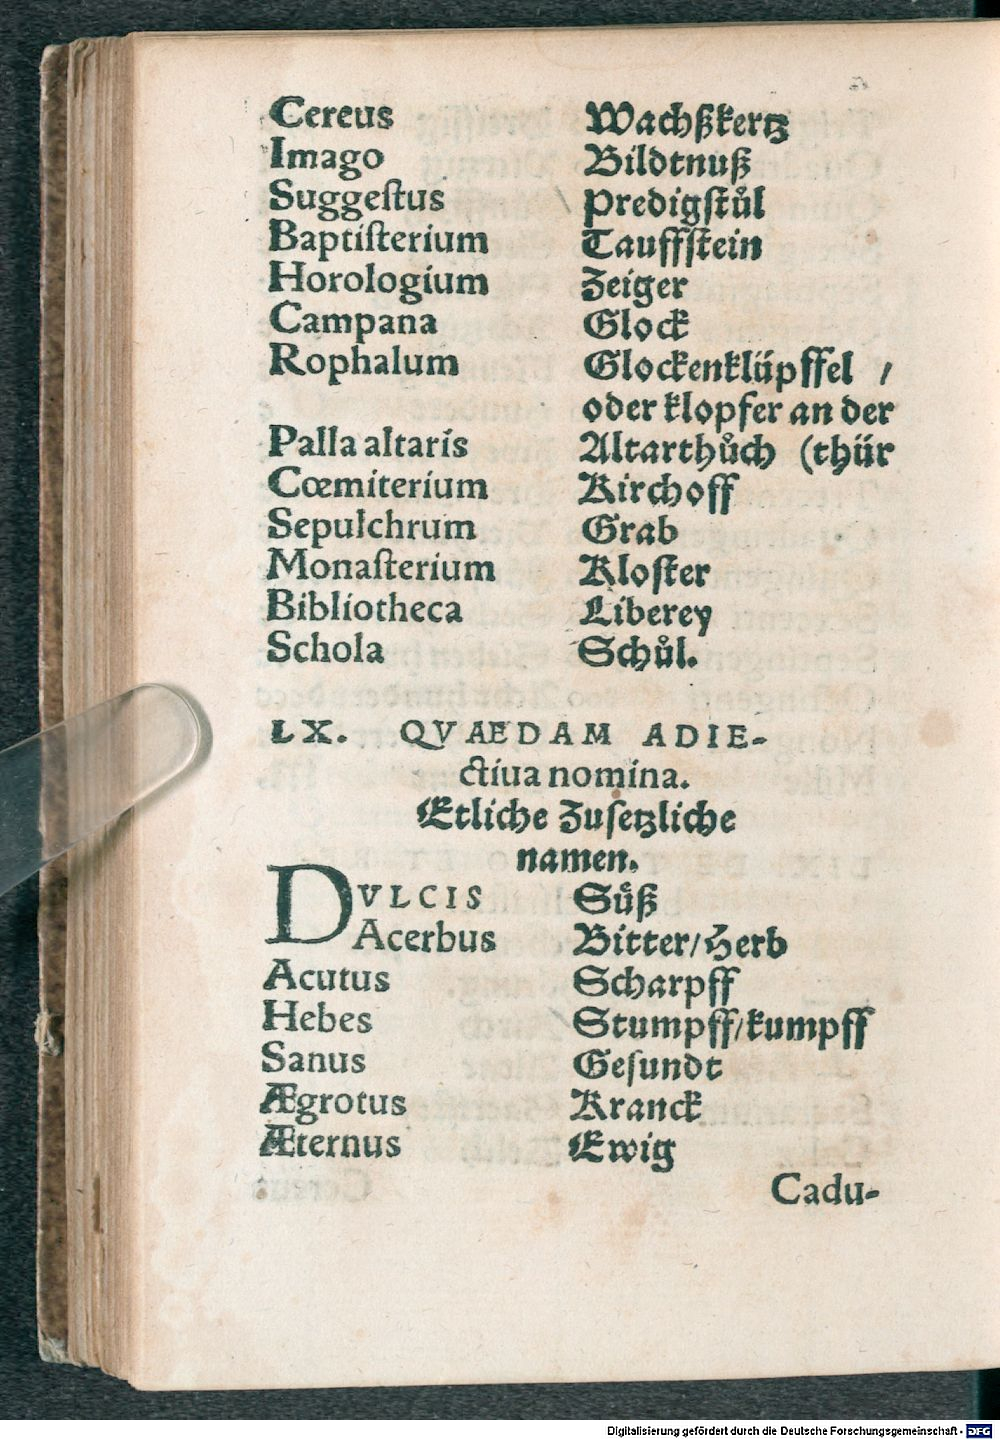 Cereus Wachßkertz
Imago Bildtnuß
Suggeſtus Predigſtůl
Baptiſterium Tauffſtein
Horologium Zeiger
Campana Glock
Rophalum Glockenklüpffel /
oder klopfer an der
Palla altaris Altarthůch (thür
Cœmiterium Kirchoff
Sepulchrum Grab
Monaſterium Kloſter
Bibliotheca Liberey
Schola Schůl.
LX. QVAEDAM ADIE-
ctiua nomina.
Etliche Zuſetzliche
namen.
DVLCIS Sůß
Acerbus Bitter/Herb
Acutus Scharpff
Hebes Stumpff/kumpff
Sanus Geſundt
Ægrotus Kranck
Æternus Ewig
Cadu-
Digitalisierung gefördert durch die Deutsche Forschungsgemeinschaft - DFG